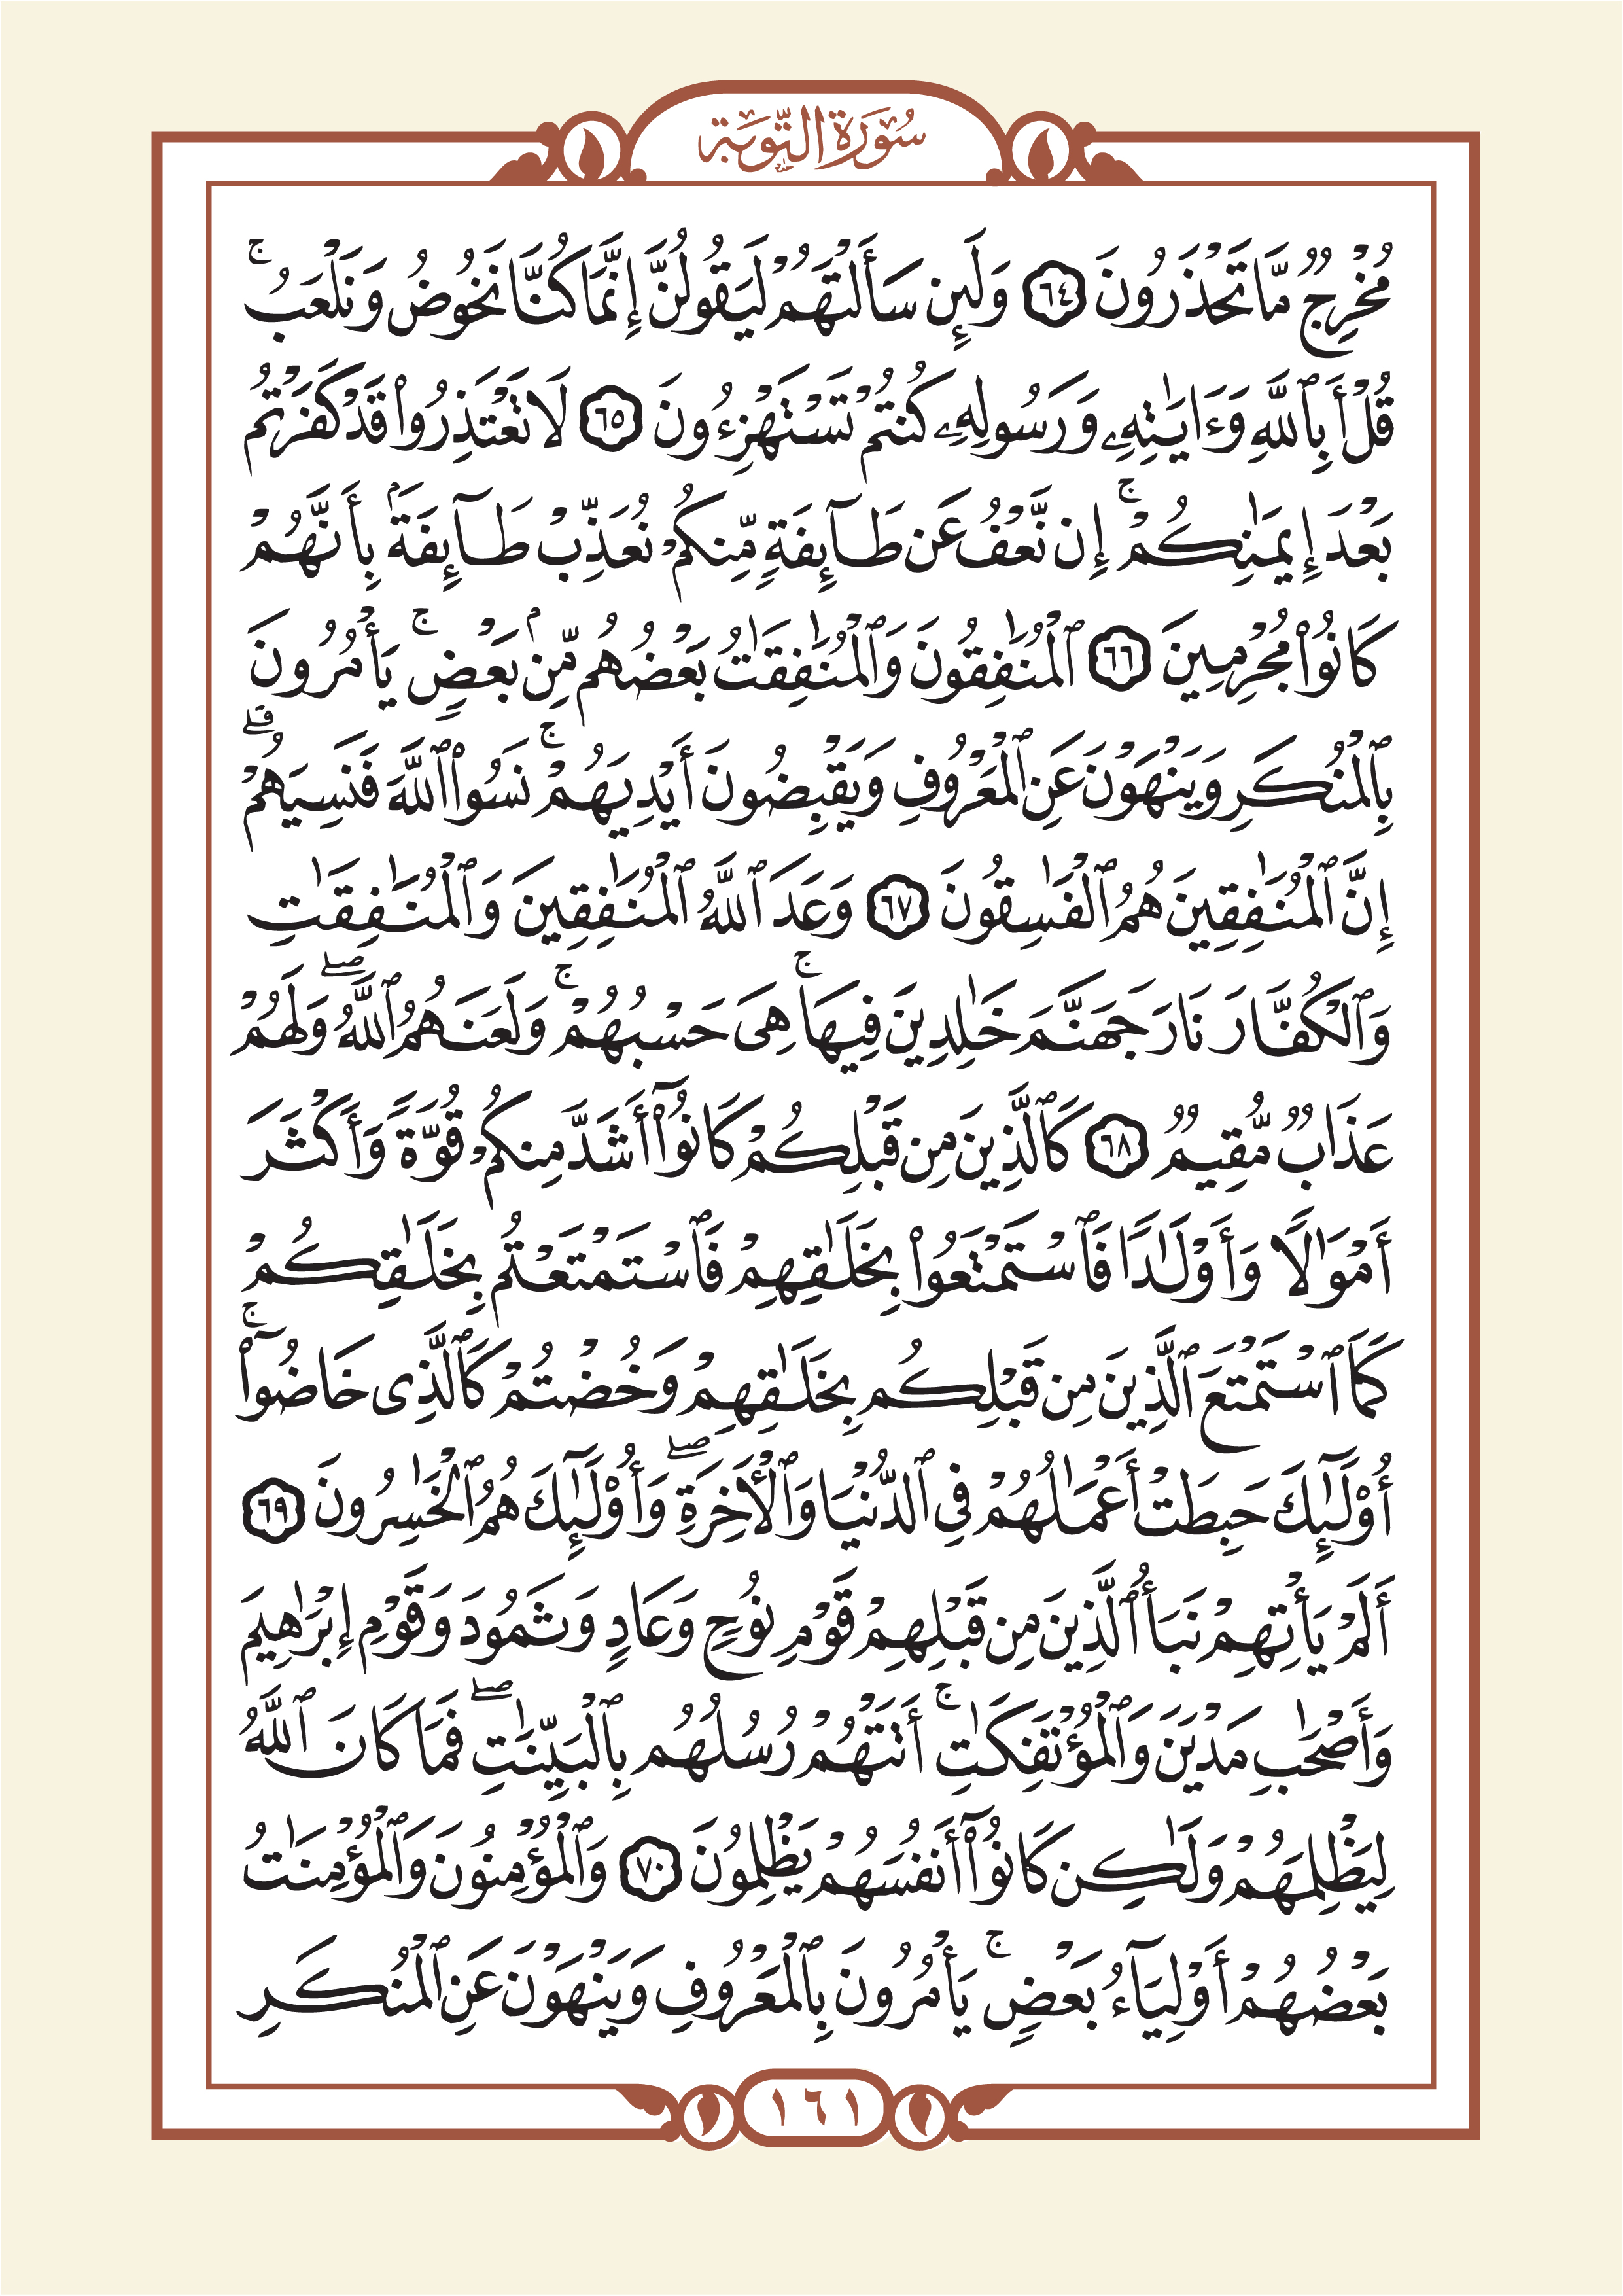 سُورَةُ التَّوْبَةِ
مُخْرِجٌ مَّا تَحْذَرُونَ ٦٤ وَلَئِن سَأَلْتَهُمْ لَيَقُولُنَّ إِنَّمَا كُنَّا نَخُوضُ وَنَلْعَبُۚ
قُلْ أَبِٱللَّهِ وَءَايَٰتِهِۦ وَرَسُولِهِۦ كُنتُمْ تَسْتَهْزِءُونَ ٦٥ لَا تَعْتَذِرُوا۟ قَدْ كَفَرْتُم
بَعْدَ إِيمَٰنِكُمْۚ إِن نَّعْفُ عَن طَآئِفَةٍ مِّنكُمْ نُعَذِّبْ طَآئِفَةَۢ بِأَنَّهُمْ
كَانُوا۟ مُجْرِمِينَ ٦٦ ٱلْمُنَٰفِقُونَ وَٱلْمُنَٰفِقَٰتُ بَعْضُهُم مِّنۢ بَعْضٍۚ يَأْمُرُونَ
بِٱلْمُنكَرِ وَيَنْهَوْنَ عَنِ ٱلْمَعْرُوفِ وَيَقْبِضُونَ أَيْدِيَهُمْۚ نَسُوا۟ ٱللَّهَ فَنَسِيَهُمْۗ
إِنَّ ٱلْمُنَٰفِقِينَ هُمُ ٱلْفَٰسِقُونَ ٦٧ وَعَدَ ٱللَّهُ ٱلْمُنَٰفِقِينَ وَٱلْمُنَٰفِقَٰتِ
وَٱلْكُفَّارَ نَارَ جَهَنَّمَ خَٰلِدِينَ فِيهَاۚ هِىَ حَسْبُهُمْۚ وَلَعَنَهُمُ ٱللَّهُۖ وَلَهُمْ
عَذَابٌ مُّقِيمٌ ٦٨ كَٱلَّذِينَ مِن قَبْلِكُمْ كَانُوٓا۟ أَشَدَّ مِنكُمْ قُوَّةً وَأَكْثَرَ
أَمْوَٰلًا وَأَوْلَٰدًا فَٱسْتَمْتَعُوا۟ بِخَلَٰقِهِمْ فَٱسْتَمْتَعْتُم بِخَلَٰقِكُمْ
كَمَا ٱسْتَمْتَعَ ٱلَّذِينَ مِن قَبْلِكُم بِخَلَٰقِهِمْ وَخُضْتُمْ كَٱلَّذِى خَاضُوٓا۟ۚ
أُو۟لَٰٓئِكَ حَبِطَتْ أَعْمَٰلُهُمْ فِى ٱلدُّنْيَا وَٱلْءَاخِرَةِۖ وَأُو۟لَٰٓئِكَ هُمُ ٱلْخَٰسِرُونَ ٦٩
أَلَمْ يَأْتِهِمْ نَبَأُ ٱلَّذِينَ مِن قَبْلِهِمْ قَوْمِ نُوحٍ وَعَادٍ وَثَمُودَ وَقَوْمِ إِبْرَٰهِيمَ
وَأَصْحَٰبِ مَدْيَنَ وَٱلْمُؤْتَفِكَٰتِۚ أَتَتْهُمْ رُسُلُهُم بِٱلْبَيِّنَٰتِۖ فَمَا كَانَ ٱللَّهُ
لِيَظْلِمَهُمْ وَلَٰكِن كَانُوٓا۟ أَنفُسَهُمْ يَظْلِمُونَ ٧٠ وَٱلْمُؤْمِنُونَ وَٱلْمُؤْمِنَٰتُ
بَعْضُهُمْ أَوْلِيَآءُ بَعْضٍۚ يَأْمُرُونَ بِٱلْمَعْرُوفِ وَيَنْهَوْنَ عَنِ ٱلْمُنكَرِ
١٦١